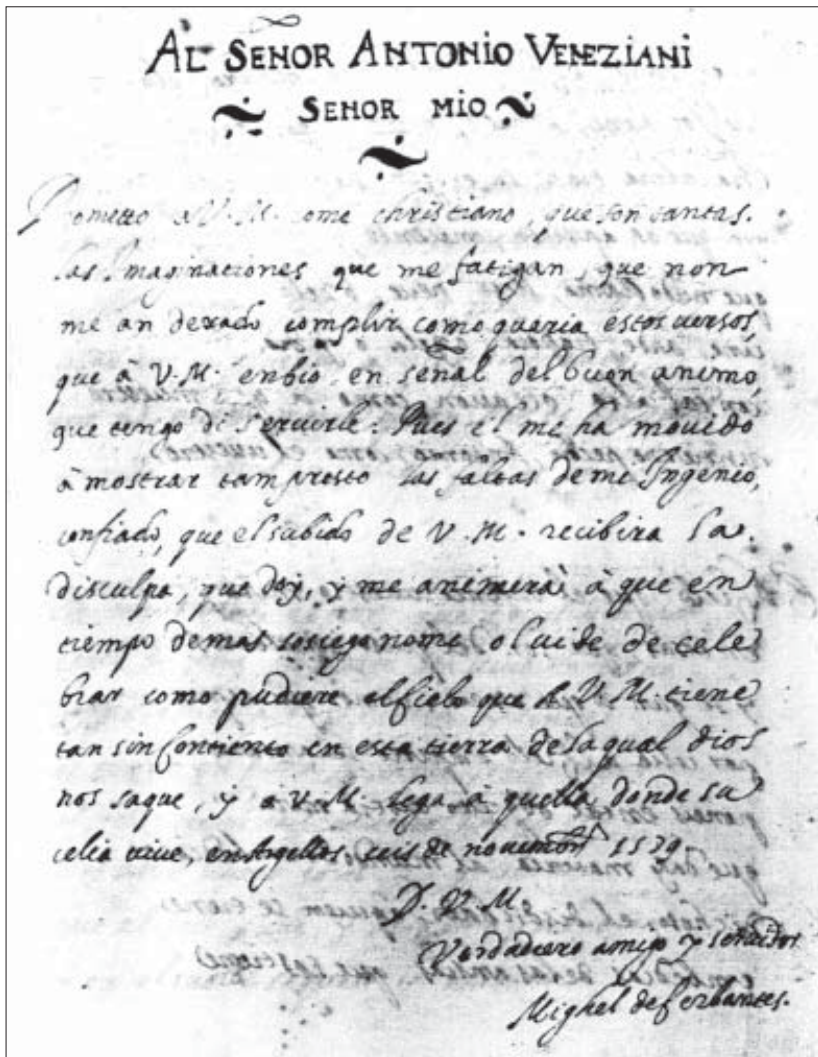 AL SEÑOR ANTONIO VENEZIANI
SEÑOR MIO
Prometto a V. M. come christiano, que son tantas
las Imaginationes que me fatigan, que non
me an dexado complir como queria estos versos,
que à V. M. enbio en señal del buen animo,
que tengo di servirle. Pues el me ha movido
à mostrar tam presto las faltas de mi Ingenio,
confiado, que el subido de V. M. recibira la
disculpa, que doy, y me animerà à que en
tiempo de mas sosiego nome olvide de cele
brar como pudiere el cielo que à V. M. tiene
tan sin contiento en esta tierra de la qual dios
nos saque, y à V. M. lega à quella, donde su
celia vive, en Argel los seis de noviembre 1579
D. V. M.
Verdadiero amigo y servidor
Mighel de Cerbantes.